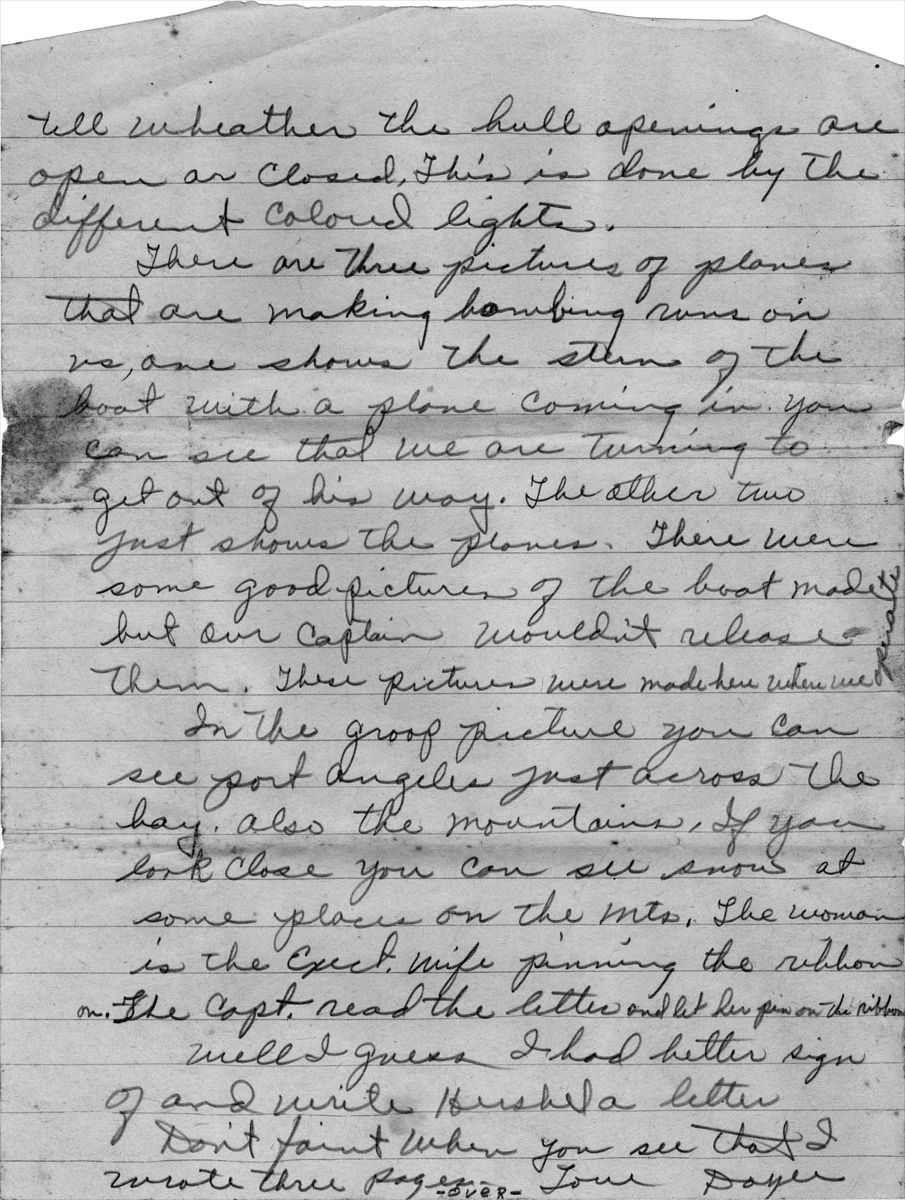 tell wheather the hull openings are
open or closed, This is done by the
different colored lights.
There are three pictures of planes
that are making bombing runs on
us, one shows the stern of the
boat with a plane coming in. you
can see that we are turning to
get out of his way. The other two
just shows the planes. There were
some good pictures of the boat made
but our Captain wouldn't release
them. These pictures were made here where we
operate
In the groop picture you can
see port angeles just across the
bay. also the mountains, If you
look close you can see snow at
some places on the mts. The woman
is the Exect. wife pinning the ribbon
on. The Capt. read the letter and let her pin on the ribbon
well I guess I had better sign
of and write Hershel a letter
Don't faint when you see that I
wrote three pages. Love Doyle
-over-